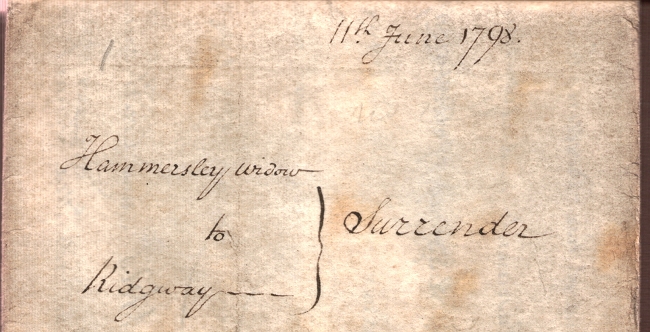 11th June 1798.
Hammersley widow
to
Surrender
Ridgway